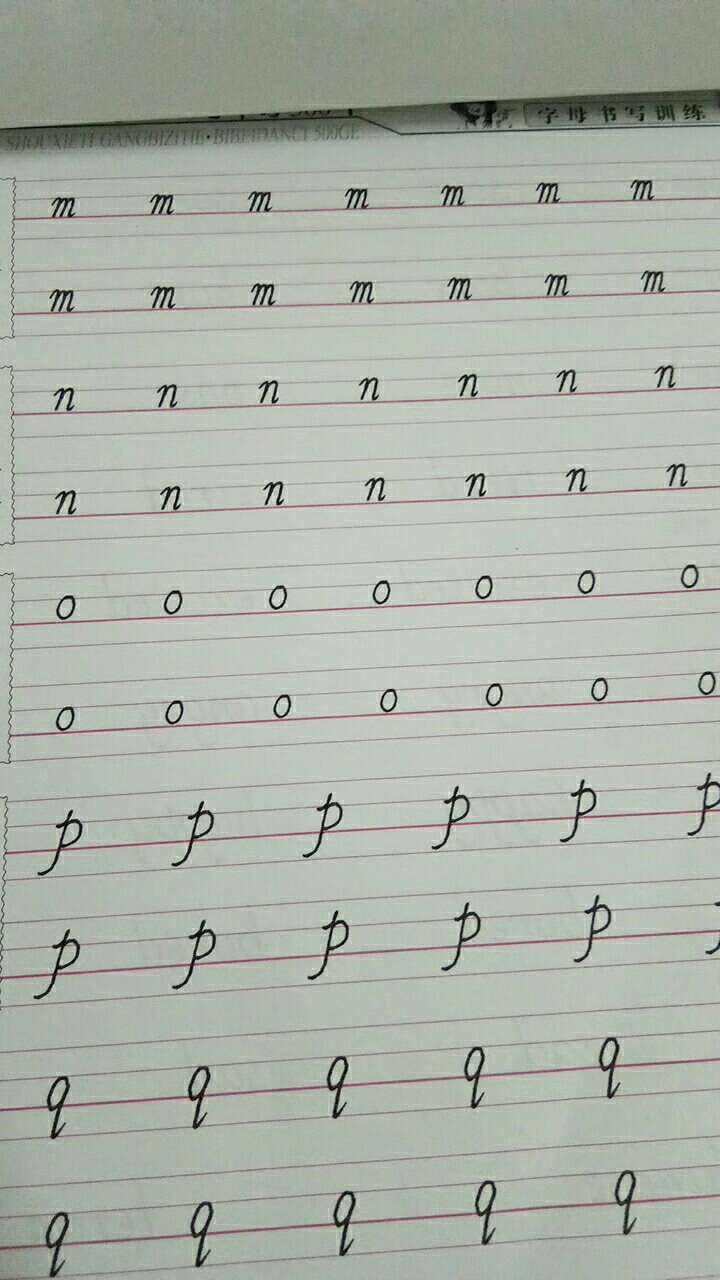 SHOUXIETI GANGBIZITIE·BIBEIDANCI 500GE 字母书写训练
m m m m m m m
m m m m m m m
n n n n n n n
n n n n n n n
o o o o o o o
o o o o o o o
p p p p p p
p p p p p
q q q q q
q q q q q